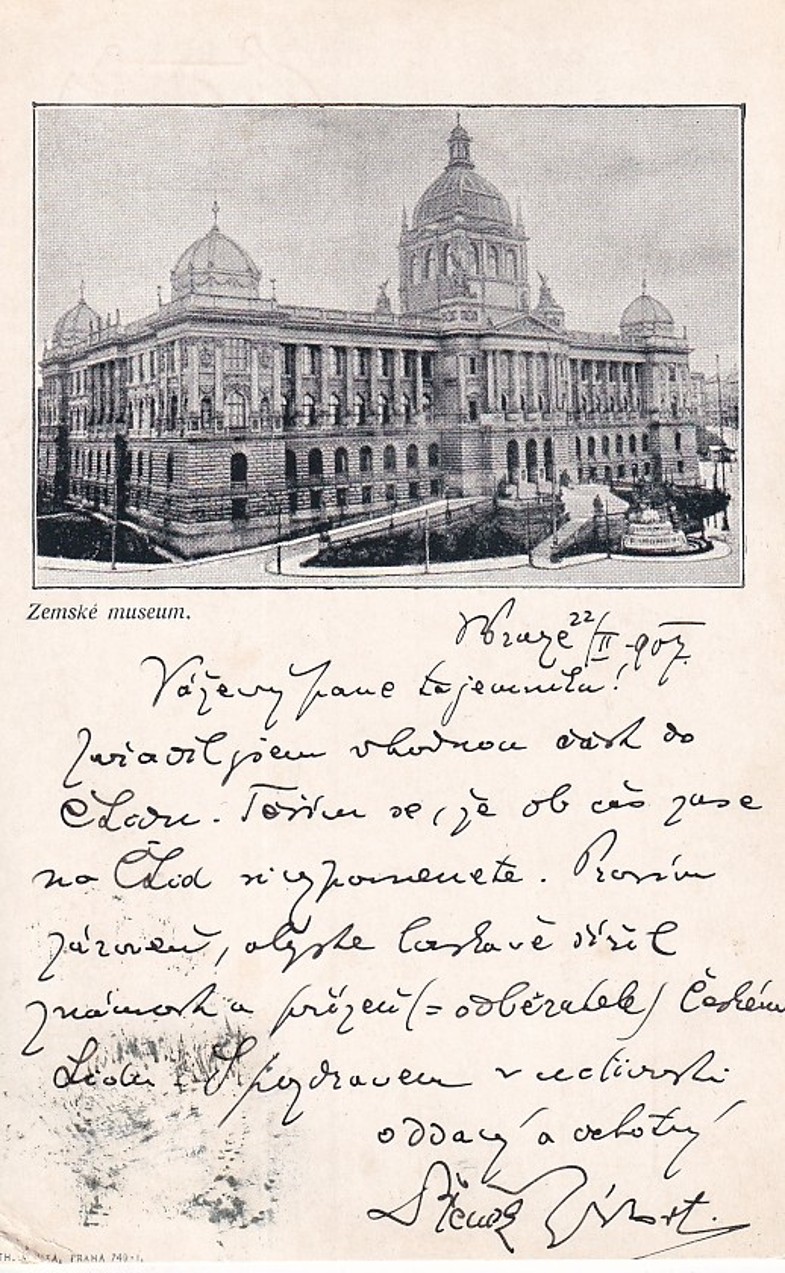 Zemské museum.
V Praze 22/II 907.
Vážený pane tajemníku!
Zařadil jsem vhodnou část do
ČLidu. Těším se, že ob čas zase
na ČLid si vzpomenete. Prosím
zároveň, abyste laskavě šířil
známost a přízeň (= odběratele) Českému
Lidu. S pozdravem v uctivosti
oddaný a ochotný
Čeněk Zíbrt.
PRAHA 749-I.